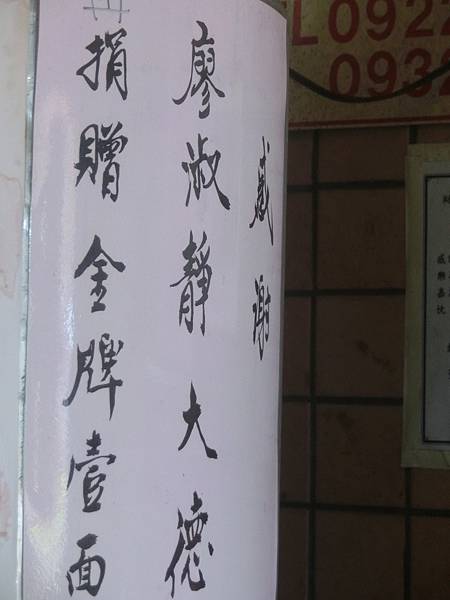 感謝
廖淑靜大德
捐贈金牌壹面
L 0922
0932